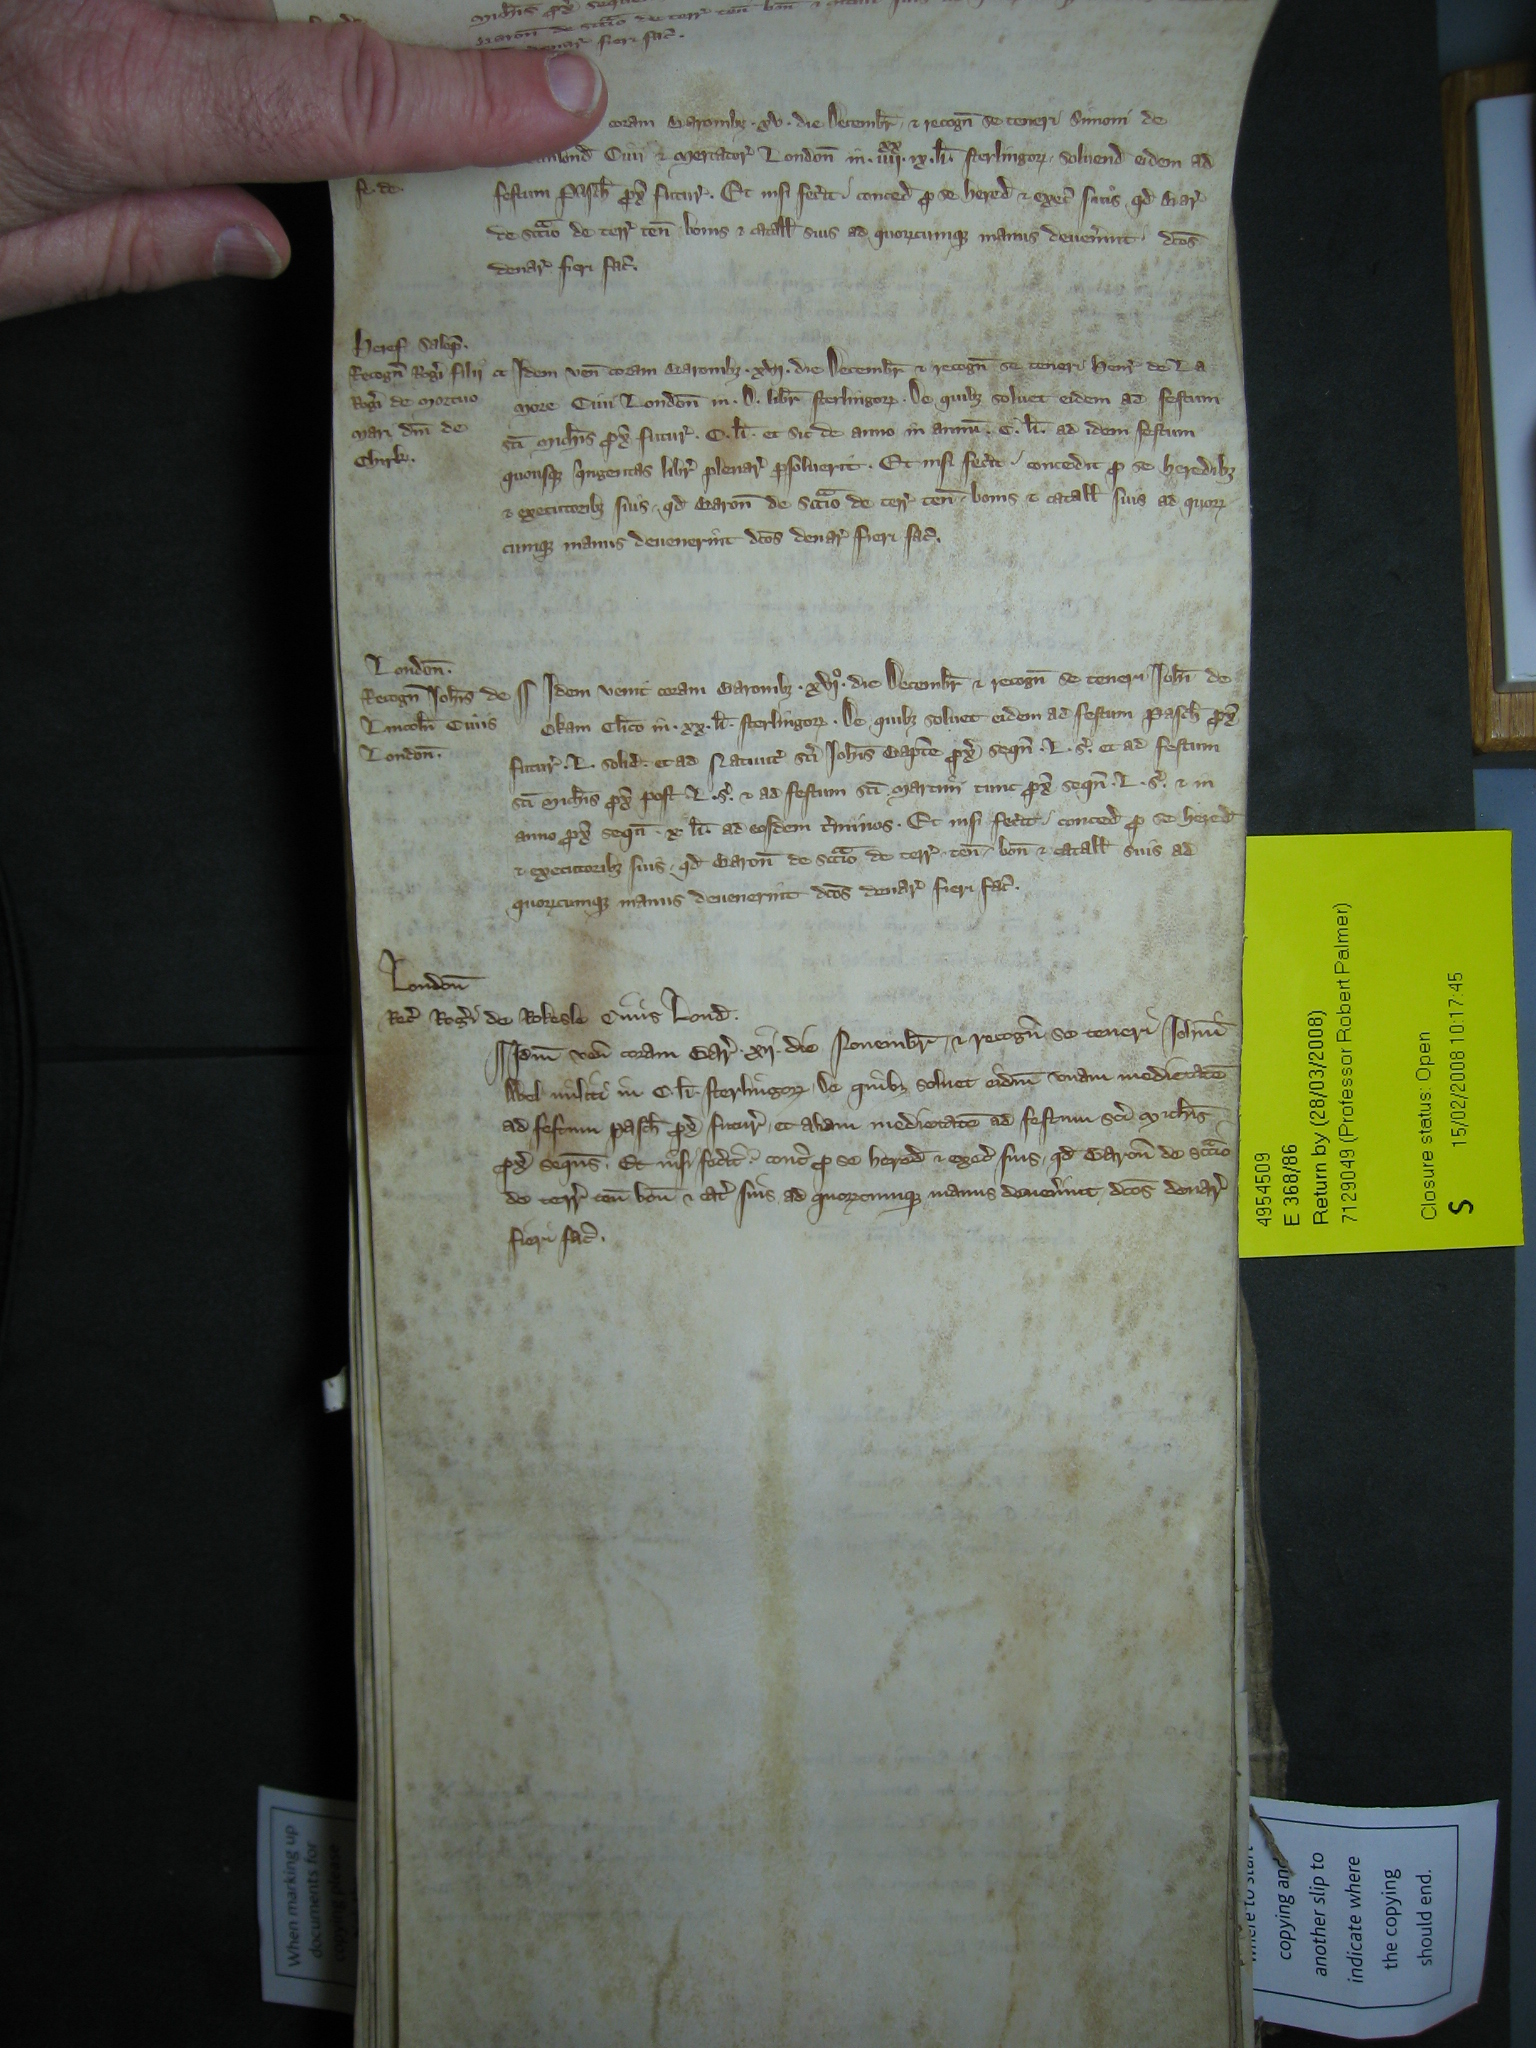 coram Baronibʒ · xv · die Decembr̄ · ⁊ recogn̄ se teneri Simoni de
Ciui ⁊ Mercator̄ London̄ in · iiijxx · ix · li · sterlingoꝝ · soluend eidem ad
festum Pasch̄ ꝓx̄ futur̄ · Et nisi fec̄it · conced̄ ꝓ se hered̄ ⁊ exec̄ suis qd̄ Bar̄
de sc̄cio de terr̄ ten̄ bonis ⁊ catall̄ suis ad quoꝝcumqʒ manus deuen̄int dc̄os
denar̄ fieri fac̄.
Heref Salop̄.
Recogn̄ Roḡi filij
Roḡi de mortuo
mari dn̄i de
Chirk.
Idem ven̄ coram Baronibʒ · xvij · die Decembr̄ ⁊ recogn̄ se teneri Henr̄ de La
More Ciui London̄ in · D · libr̄ sterlingoꝝ · De quibʒ soluet eidem ad festum
sc̄i Mich̄is ꝓx̄ futur̄ · C · li · et sic de anno in annū · C · li · ad idem festum
quousqʒ q̄ngentas libr̄ plenar̄ ꝑsoluerit · Et nisi fec̄it · concedit ꝓ se heredibʒ
⁊ executoribʒ suis · qd̄ Baron̄ de sc̄cio de terr̄ ten̄ · bonis ⁊ catall̄ suis ad quoꝝ
cumqʒ manus deuenerint dc̄os denar̄ fieri fac̄.
London̄.
Recogn̄ Joh̄is de
Lincoln̄ Ciuis
London̄.
Idem venit coram Baronibʒ · xvijo · die Decembr̄ ⁊ recogn̄ se teneri Joh̄i de
Okam Cl̄ico in · xx · li · sterlingoꝝ · De quibʒ soluet eidem ad festum Pasch̄ ꝓx̄
futur̄ · L · solid · et ad Natiuit̄ sc̄i Joh̄is Bapt̄e ꝓx̄ sequn̄ · L · s̄ · et ad festum
sc̄i Mich̄is ꝓx̄ post L · s̄ · ⁊ ad festum sc̄i Martini tunc ꝓx̄ sequn̄ · L · s̄ · ⁊ in
anno ꝓx̄ sequn̄ · x li · ad eosdem t̄minos · Et nisi fec̄it · conced̄ ꝓ se hered̄
⁊ executoribʒ suis · qd̄ Baron̄ de sc̄cio de terr̄ · ten̄ · bon̄ ⁊ catall̄ suis ad
quoꝝcumqʒ manus deuenerint dc̄os denar̄ fieri fac̄.
London̄
Rec̄ Roḡi de Rokesle Ciuis Lond̄.
Idm̄ ven̄ coram Bar̄ · xij · die Nouembr̄ · ⁊ recogn̄ se teneri Joh̄ni
Abel militi in C · li · sterlingoꝝ · De quibʒ soluet eidm̄ vnam medietatē
ad festum Pasch̄ ꝓx̄ futur̄ · et aliam medietatē ad festum sc̄i Mich̄is
ꝓx̄ sequns̄ · Et nisi fec̄it · conc̄ ꝓ se hered̄ ⁊ exec̄ suis · qd̄ Baron̄ de sc̄cio
de terr̄ ten̄ bon̄ ⁊ cat̄ suis ad quoꝝcumqʒ manus deuen̄int dc̄os denar̄
fieri fac̄.
4954509
E 368/86
Return by (28/03/2008)
7129049 (Professor Robert Palmer)
Closure status: Open
S 15/02/2008 10:17:45
When marking up
documents for
copying please
where to start
copying and
another slip to
indicate where
the copying
should end.